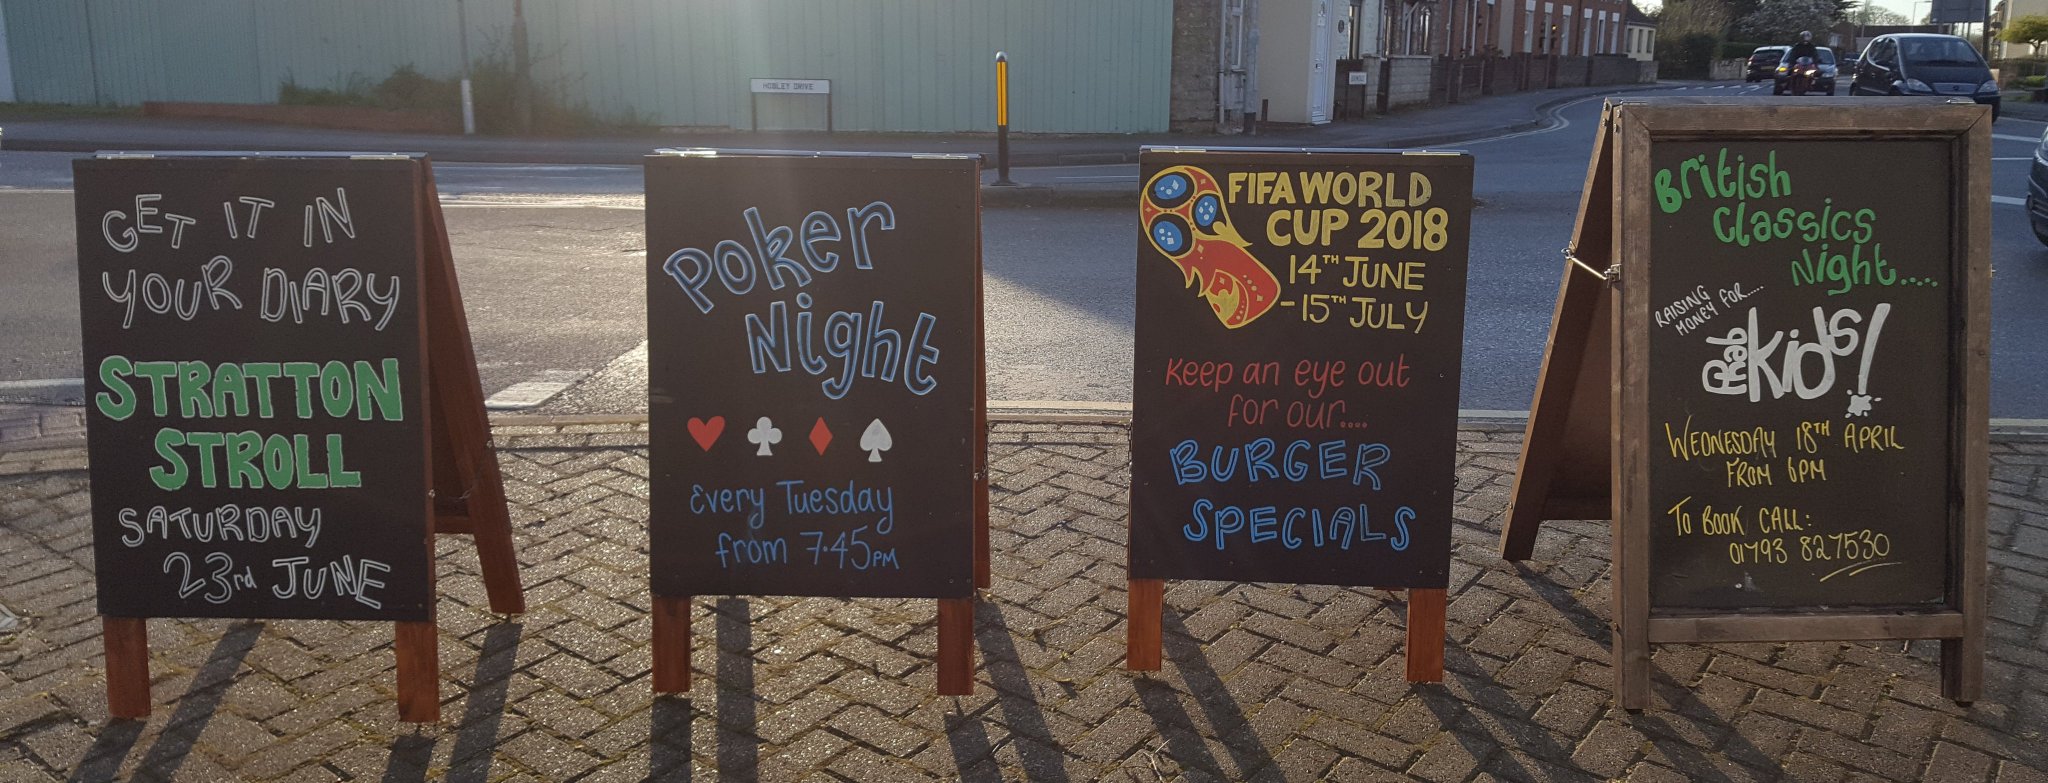 HOBLEY DRIVE
GET IT IN
YOUR DIARY
STRATTON
STROLL
SATURDAY
23rd JUNE
Poker
Night
Every Tuesday
from 7.45PM
FIFA WORLD
CUP 2018
14TH JUNE
-15TH JULY
Keep an eye out
for our....
BURGER
SPECIALS
British
Classics
Night.....
RAISING
MONEY FOR.....
Rab
Kids!
WEDNESDAY 18TH APRIL
FROM 6PM
TO BOOK CALL:
01793 827530